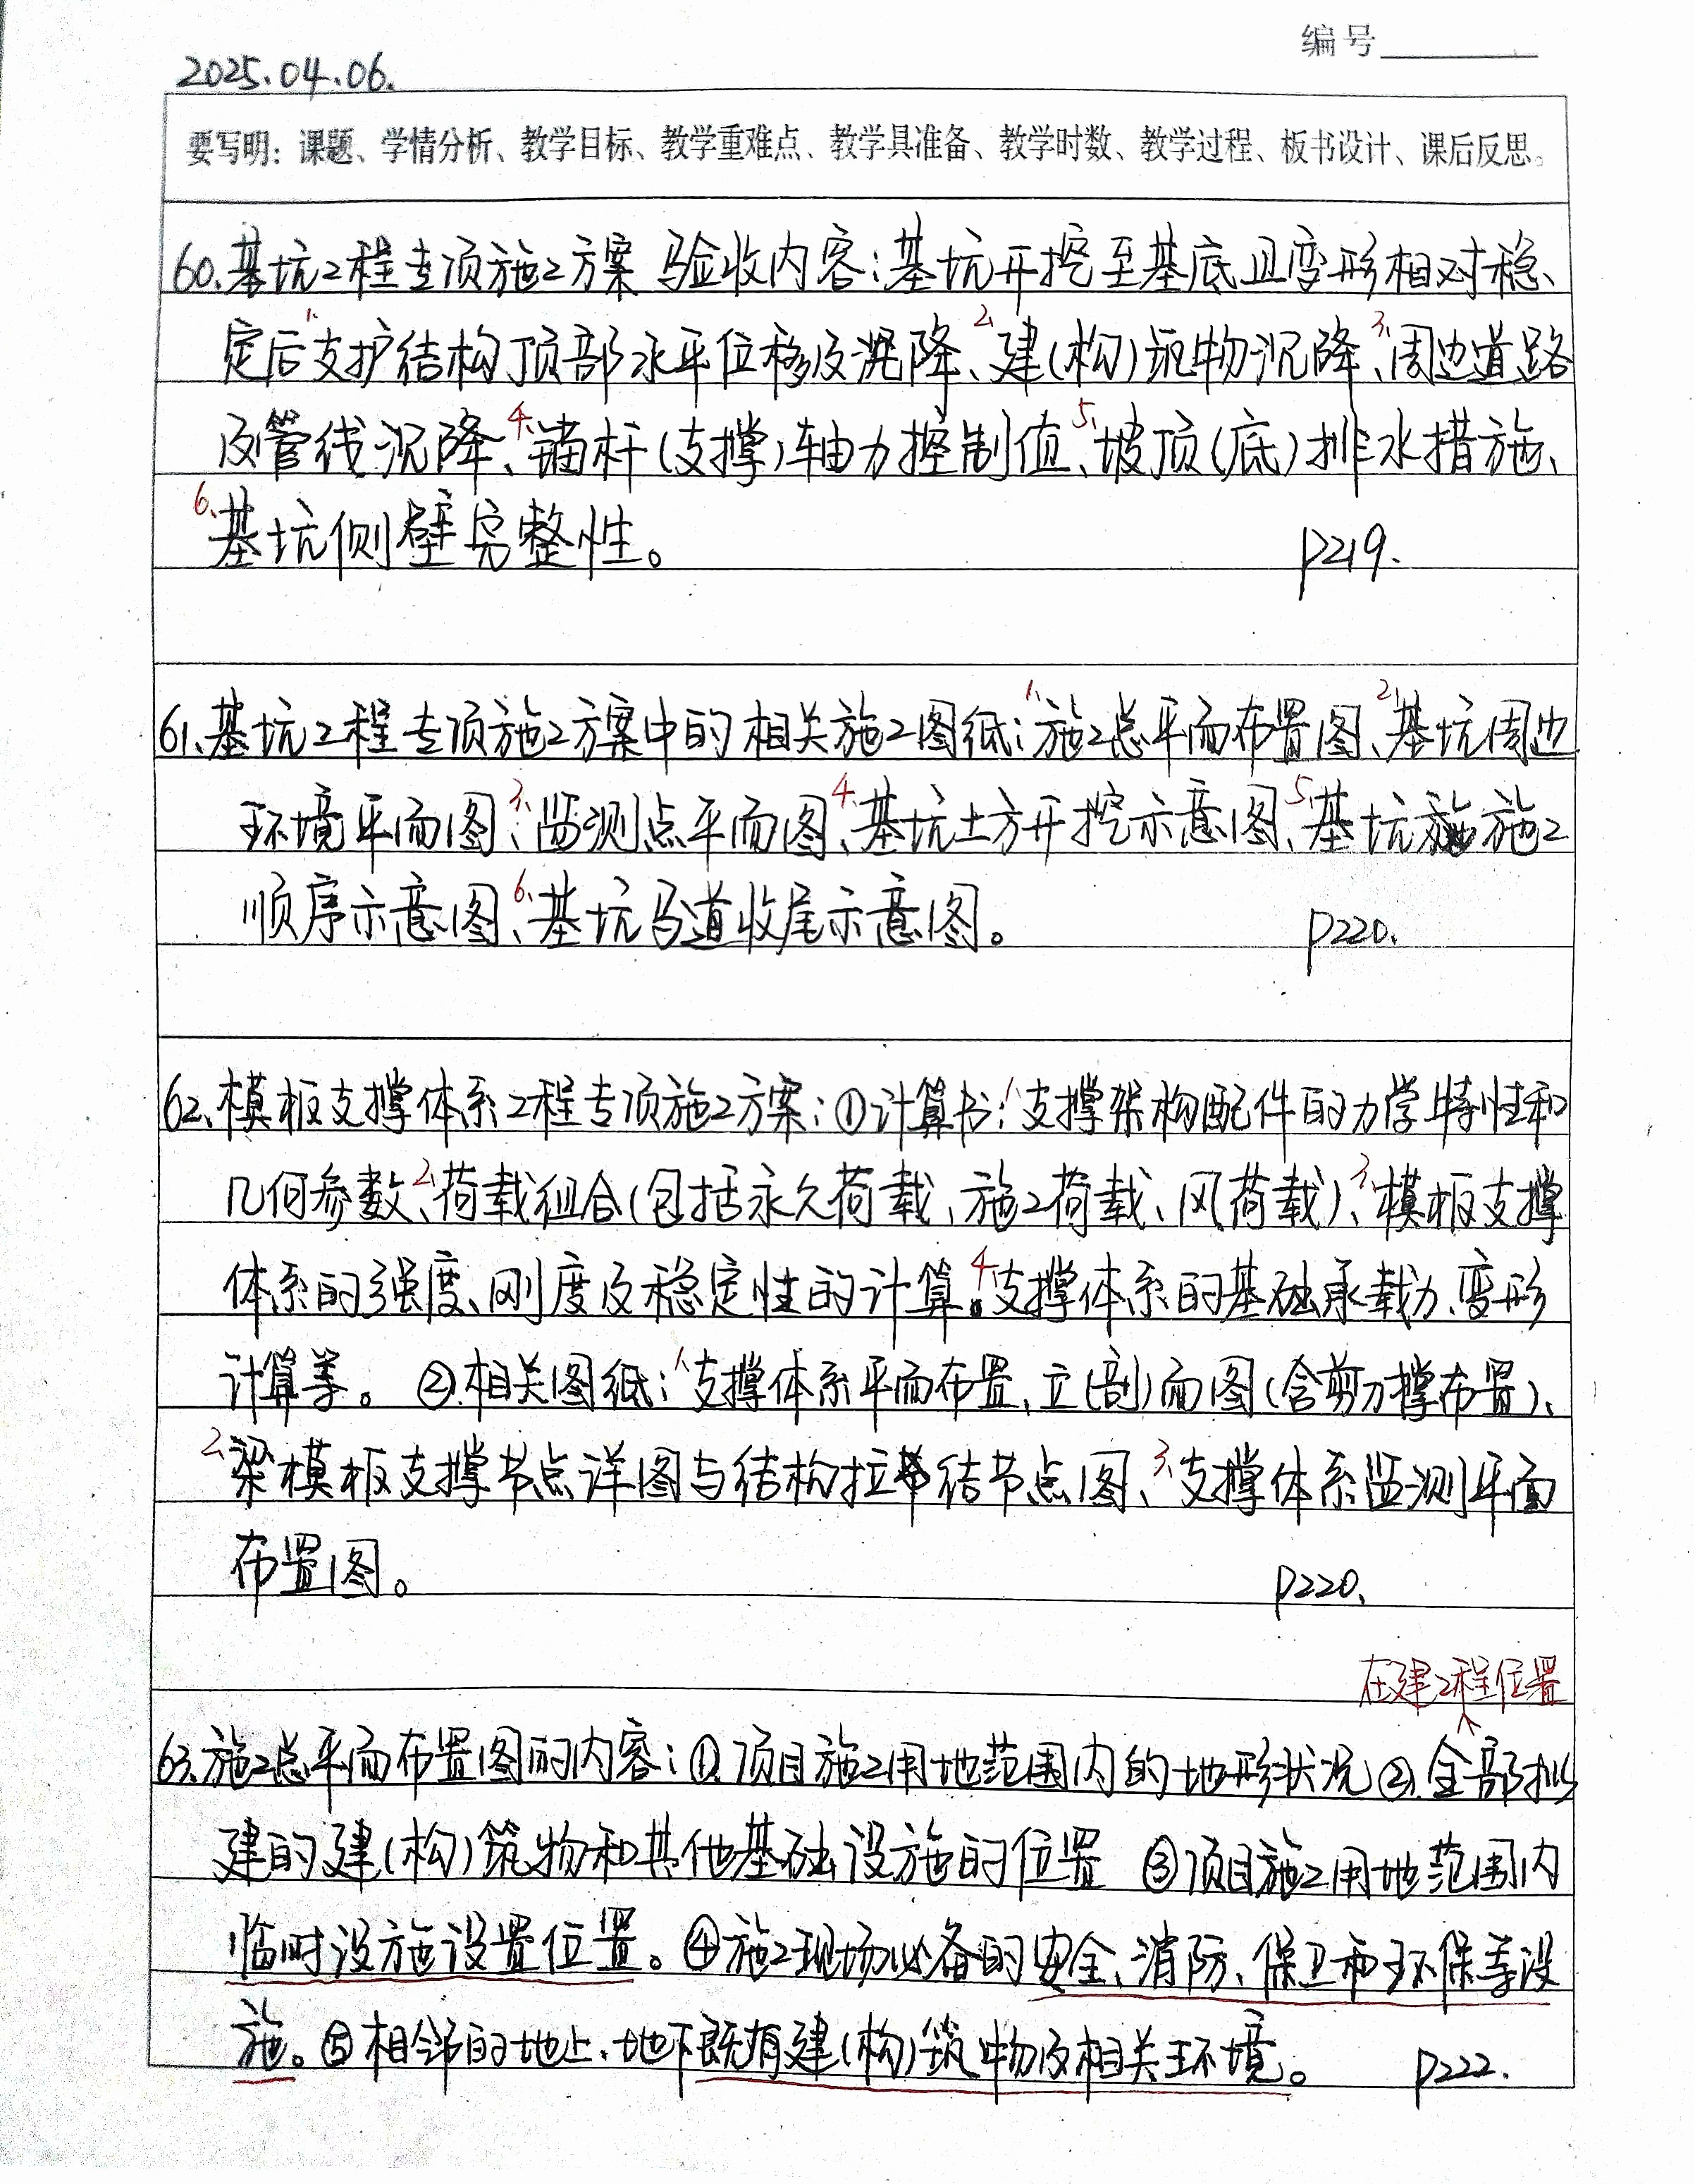 编号
2025.04.06.
要写明：课题、学情分析、教学目标、教学重难点、教学具准备、教学时数、教学过程、板书设计、课后反思。
60.基坑工程专项施工方案 验收内容：基坑开挖至基底且变形相对稳、
定后1.支护结构顶部水平位移及沉降、2.建(构)筑物沉降、3.周边道路
及管线沉降、4.锚杆(支撑)轴力控制值、5.坡顶(底)排水措施、
6.基坑侧壁完整性。 P219.
61.基坑工程专项施工方案中的相关施工图纸：1.施工总平面布置图、2.基坑周边
环境平面图、3.监测点平面图、4.基坑土方开挖示意图、5.基坑施工
顺序示意图、6.基坑马道收尾示意图。 P220.
62.模板支撑体系工程专项施工方案：①计算书：1.支撑架构配件的力学特性和
几何参数、2.荷载组合(包括永久荷载、施工荷载、风荷载)、3.模板支撑
体系的强度、刚度及稳定性的计算、4.支撑体系的基础承载力、变形
计算等。 ②.相关图纸：1.支撑体系平面布置、立(剖)面图(含剪刀撑布置)、
2.梁模板支撑节点详图与结构拉结节点图、3.支撑体系监测平面
布置图。 P220.
在建工程位置
63.施工总平面布置图的内容：①.项目施工用地范围内的地形状况②.全部拟
建的建(构)筑物和其他基础设施的位置 ③项目施工用地范围内
临时设施设置位置。④施工现场必备的安全、消防、保卫和环保等设
施。⑤相邻的地上、地下既有建(构)筑物及相关环境。 P222.